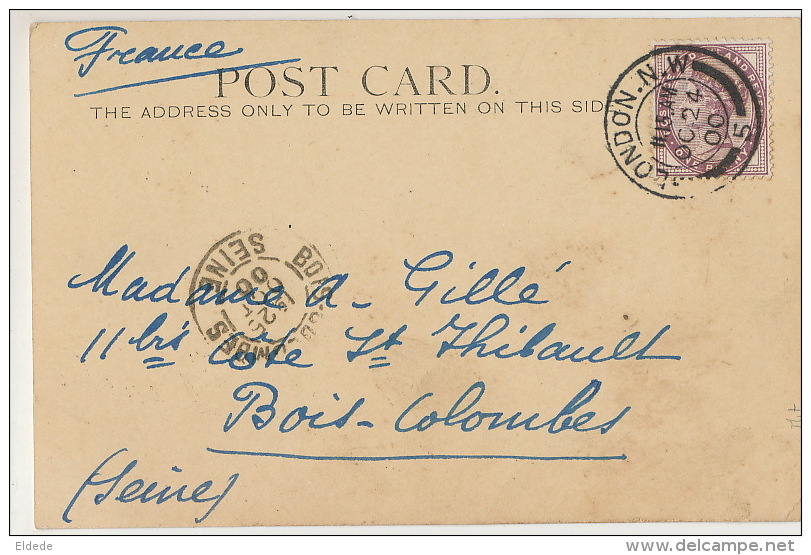 France
POST CARD.
THE ADDRESS ONLY TO BE WRITTEN ON THIS SID
LONDON. N.W
OC 24
00
5
BOIS-COLOMBES
SEINE
Madame A. Gillé
11 bis Côte St Thibault
Bois-Colombes
(Seine)
Eldede
www.delcampe.net